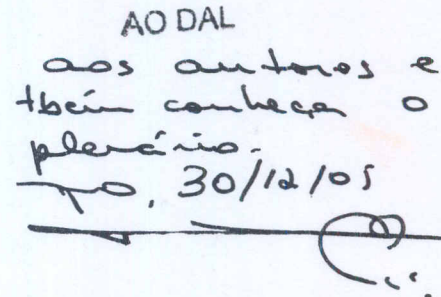 AO DAL
aos autores e
tbém conheça o
plenário.
30/12/05